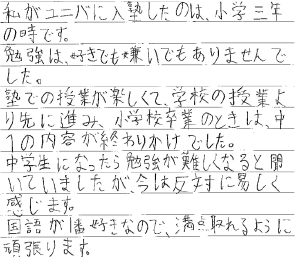 私がユニバに入塾したのは、小学三年
の時です。
勉強は、好きでも嫌いでもありませんで
した。
塾での授業が楽しくて、学校の授業よ
り先に進み、小学校卒業のときは、中
1の内容が終わりかけでした。
中学生になったら勉強が難しくなると聞
いていましたが、今は反対に易しく
感じます。
国語が1番好きなので、満点取れるように
頑張ります。